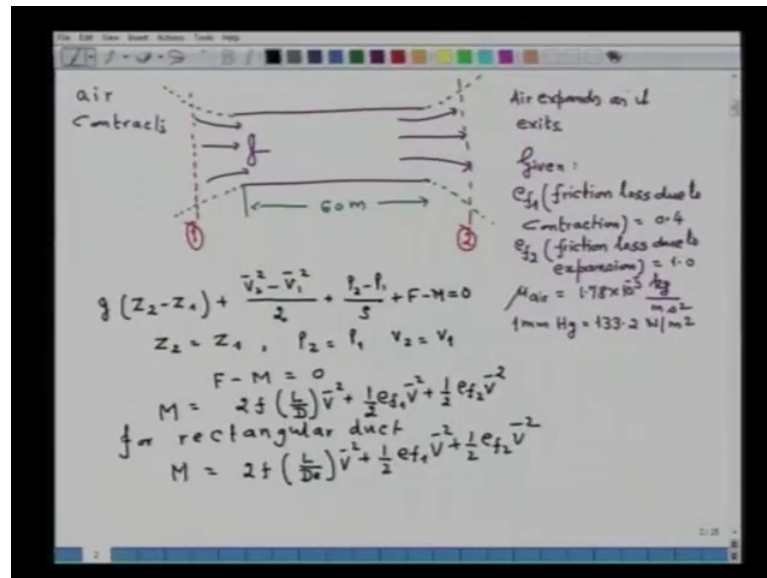 File Edit View Insert Actions Tools Help
air
contracts
60 m
1
2
Air expands as it
exits
Given:
ef1 (friction loss due to
contraction) = 0.4
ef2 (friction loss due to
expansion) = 1.0
μair = 1.78×10⁻⁵ kg/m.s²
1mm Hg = 133.2 N/m²
g (Z2-Z1) + (V̄2² - V̄1²)/2 + (P2-P1)/ρ + F-M=0
Z2 = Z1 , P2 = P1 V2 = V1
F-M = 0
M = 2f (L/D) V̄² + ½ ef1 V̄² + ½ ef2 V̄²
for rectangular duct
M = 2f (L/De) V̄² + ½ ef1 V̄² + ½ ef2 V̄²
2